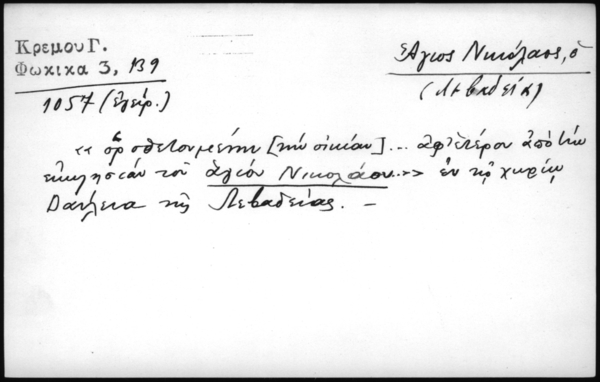 Κρεμου Γ.
Φωκικα 3, 139
1057 (ἔγγρ.)
Ἅγιος Νικόλαος, ὁ
(Λεβαδεία)
« ὁροθετουμένην [τὴν οἰκίαν] ... ἀφ' ἑτέρου ἀπὸ τὴν
ἐκκλησίαν τοῦ ἁγίου Νικολάου..» ἐν τῷ χωρίῳ
Δαύλεια τῆς Λεβαδείας. –